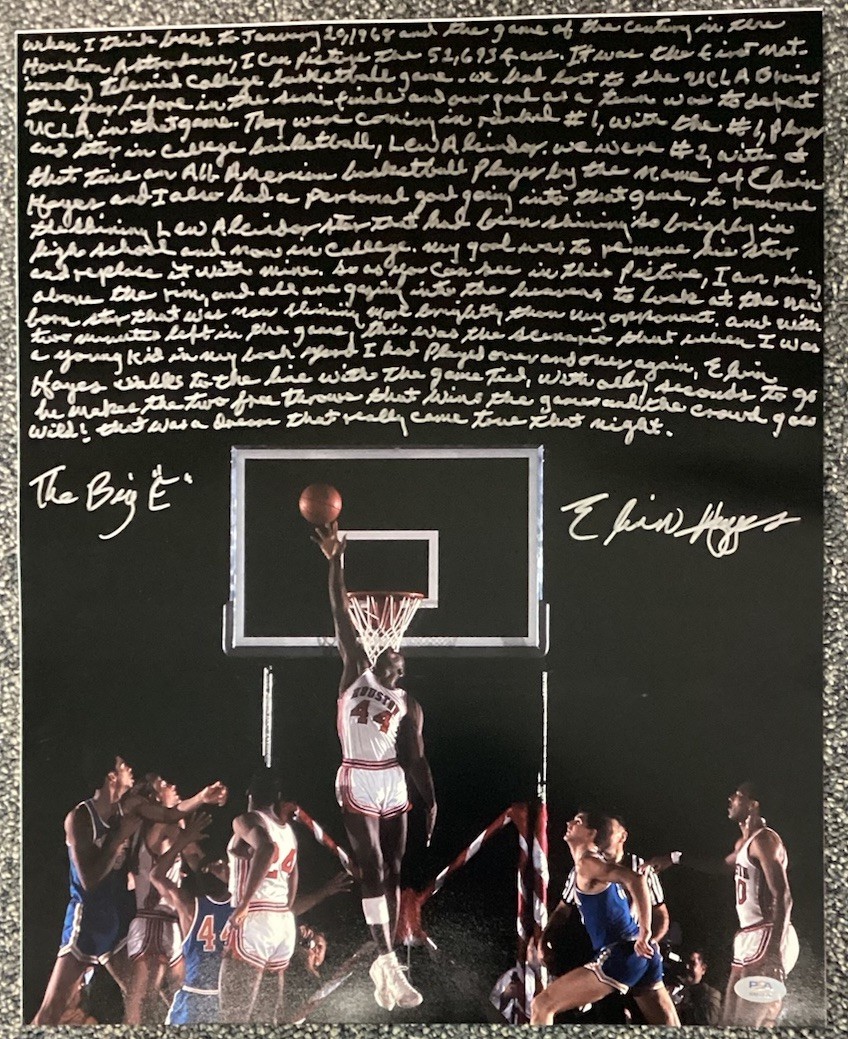 when I think back to January 20, 1968 and the game of the century in the
Houston Astrodome, I can picture the 52,693 fans. It was the first nat-
ionally televised College basketball game. we had lost to the UCLA Bruins
the year before in the semi finals and our goal as a team was to defeat
UCLA in that game. They were coming in ranked #1, with the #1, player
and star in college basketball, Lew Alcindor. we were #2, with at
that time an All American basketball player by the name of Elvin
Hayes and I also had a personal goal going into that game, to remove
the shining Lew Alcindor star that had been shining so brightly in
high school and now in college. my goal was to remove his star
and replace it with mine. So as you can see in this picture, I am rising
above the rim, and all are gazing into the heavens to look at the new
born star that was now shining more brightly than my opponent. and with
two minutes left in the game, this was the scenario that when I was
a young kid in my back yard I had played over and over again, Elvin
Hayes walks to the line with the game tied, with only seconds to go
he makes the two free throws that wins the game and the crowd goes
wild! that was a dream that really came true that night.
The Big "E"
Elvin Hayes
HOUSTON
44
24
44
PSA